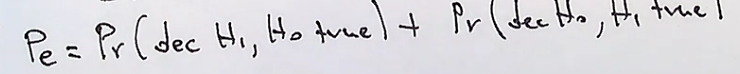 Pe = Pr(dec H₁, H₀ true) + Pr(dec H₀, H₁ true)